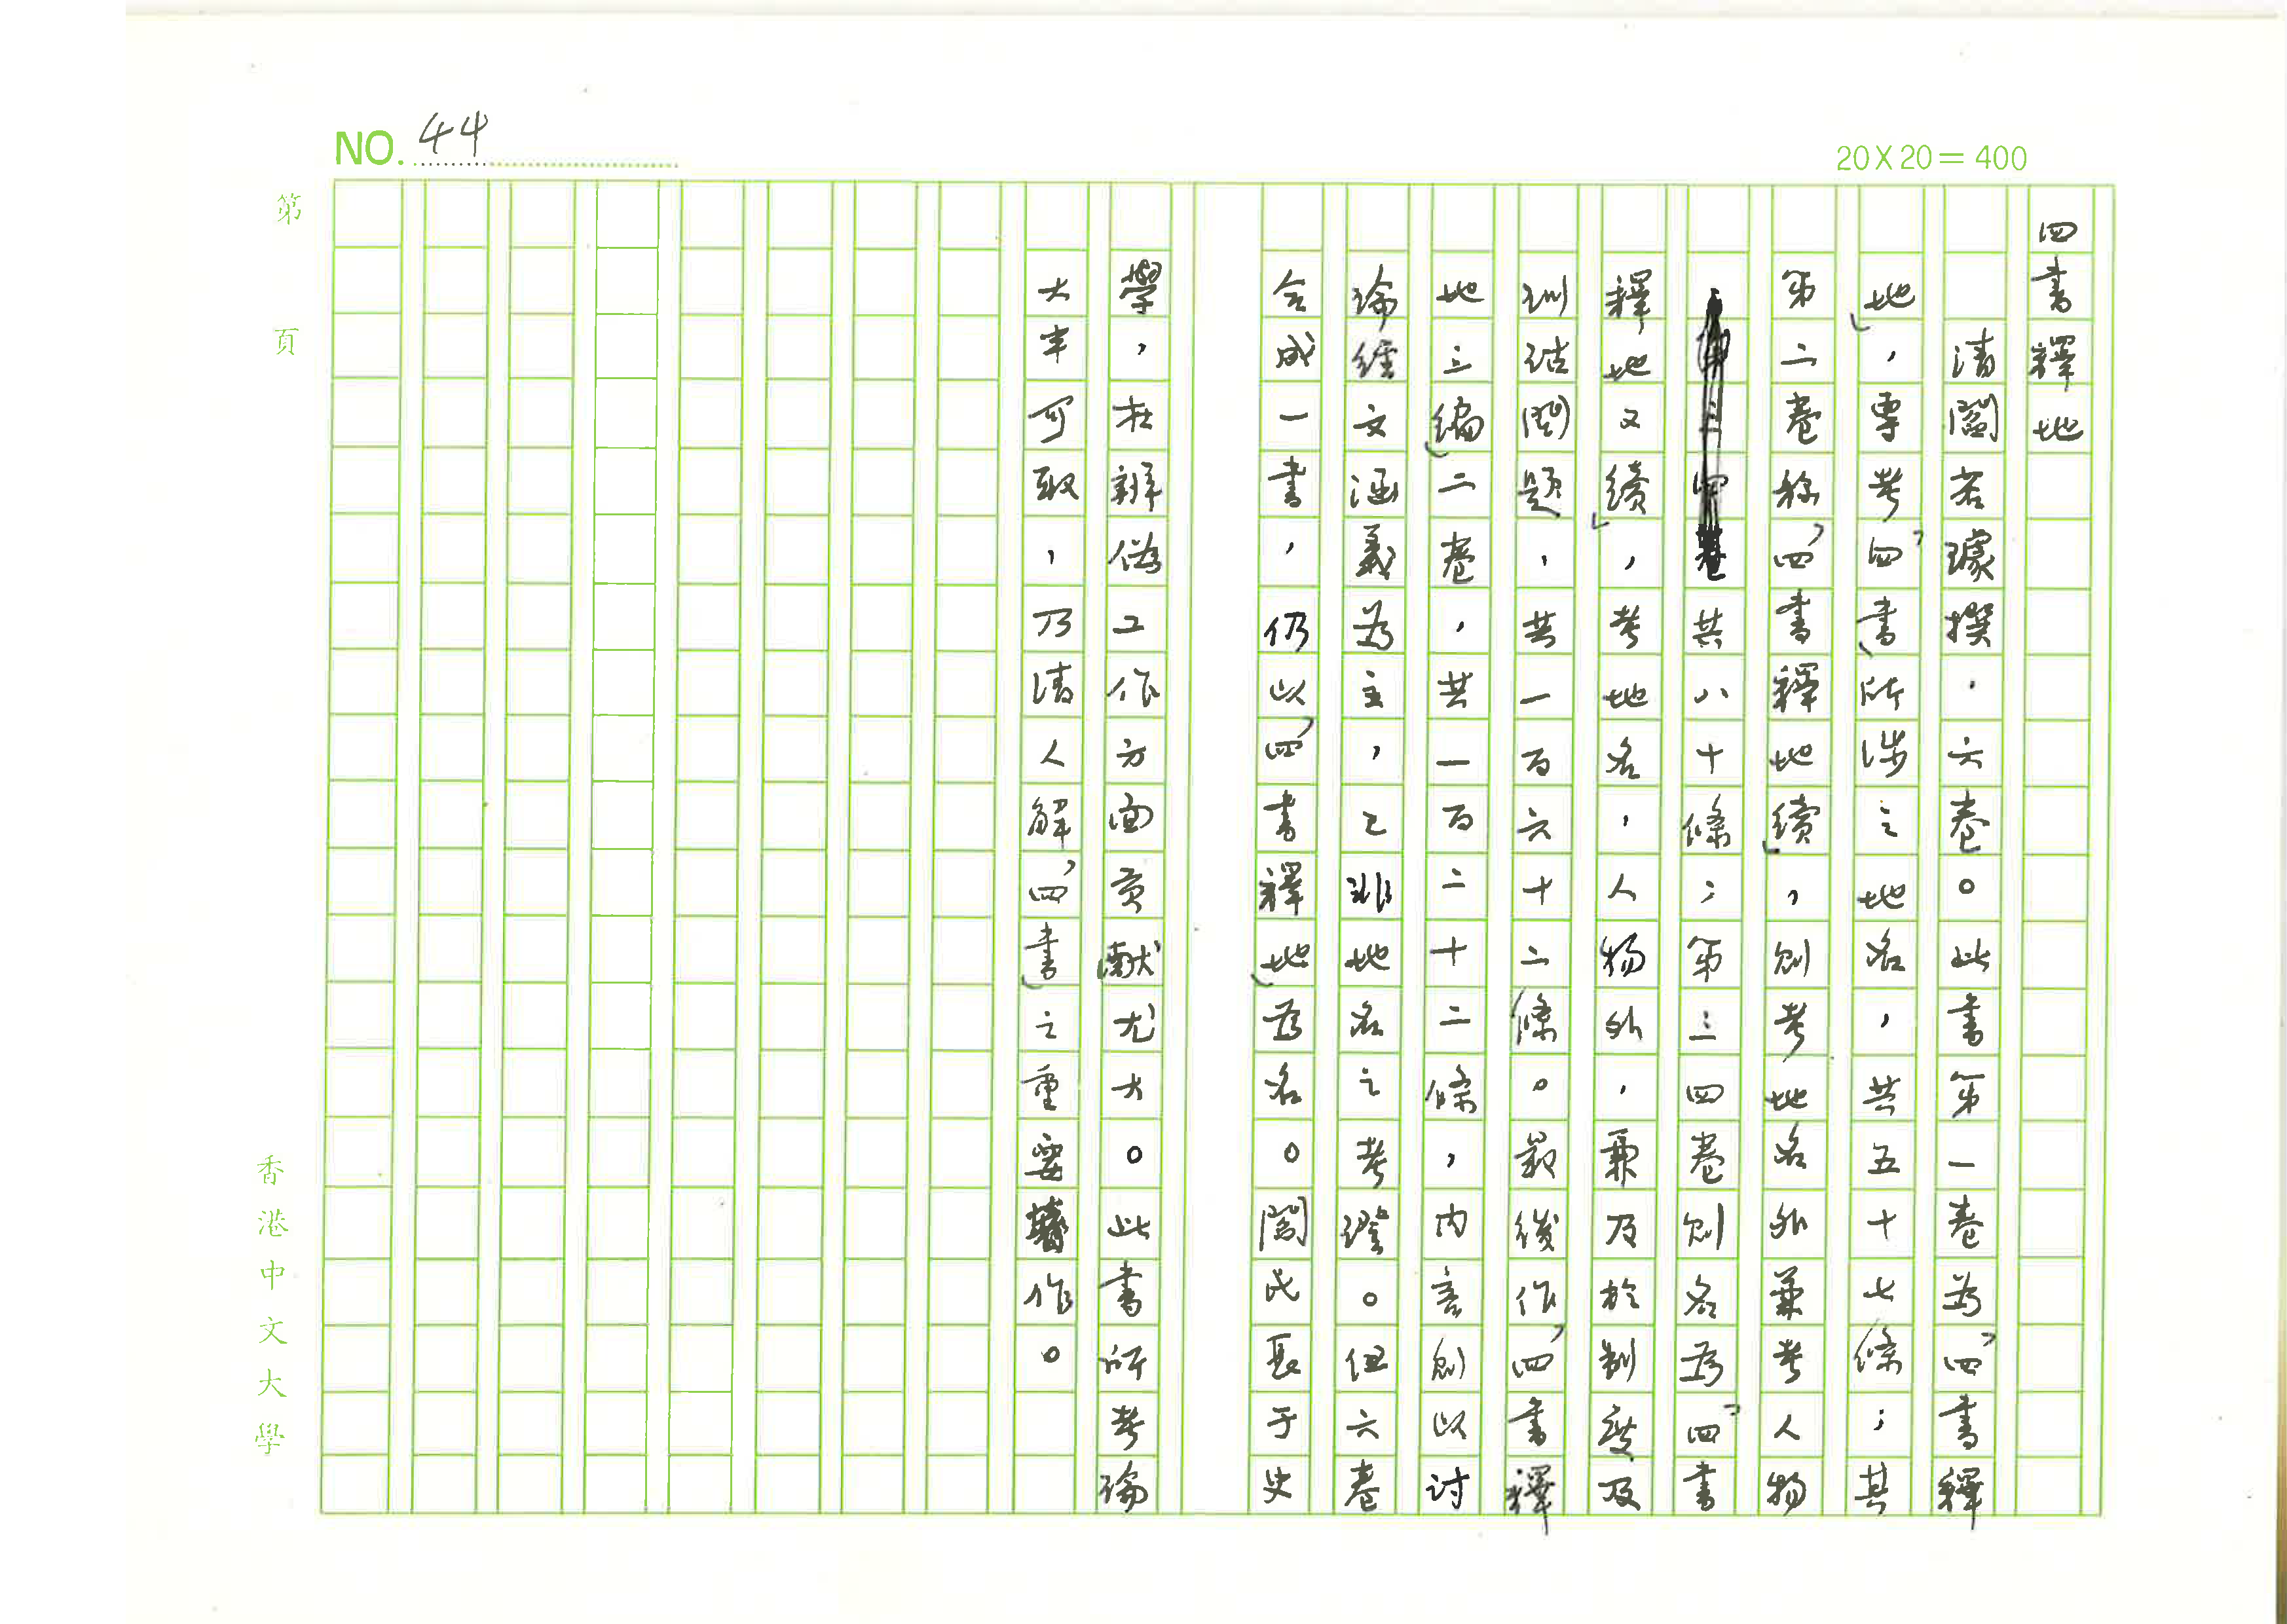 NO. 44
20X20=400
四書釋地
清閻若璩撰．六卷。此書第一卷為「四書釋
地」，專考「四書」所涉之地名，共五十七條；其
第二卷稱「四書釋地續」，則考地名外兼考人物
共八十條；第三四卷則名為「四書
釋地又續」，考地名，人物外，兼及於制度及
訓詁問題，共一百六十二條。最後作「四書釋
地三編」二卷，共一百二十二條，內容則以討
論經文涵義為主，已非地名之考證。但六卷
合成一書，仍以「四書釋地」為名。閻氏長于史
學，在辨偽工作方面貢獻尤大。此書所考論
大半可取，乃清人解「四書」之重要著作。
第 頁
香港中文大學